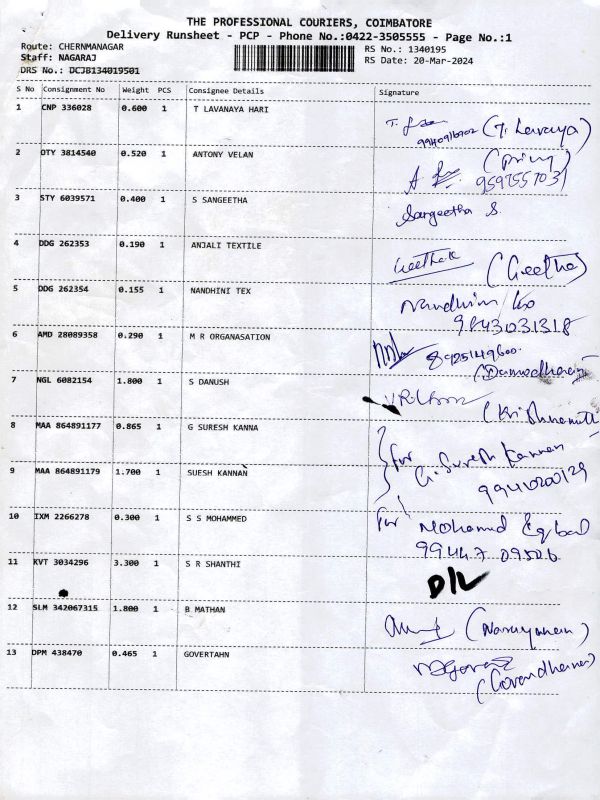 THE PROFESSIONAL COURIERS, COIMBATORE
Delivery Runsheet - PCP - Phone No.:0422-3505555 - Page No.:1
Route: CHERNMANAGAR RS No.: 1340195
Staff: NAGARAJ RS Date: 20-Mar-2024
DRS No.: DCJB134019501
S No Consignment No Weight PCS Consignee Details Signature
1 CNP 336028 0.600 1 T LAVANAYA HARI
(T. Lavanya)
2 OTY 3814540 0.520 1 ANTONY VELAN
3 STY 6039571 0.400 1 S SANGEETHA
Sangeetha S.
4 DDG 262353 0.190 1 ANJALI TEXTILE
(Geetha)
5 DDG 262354 0.155 1 NANDHINI TEX
Nandhini
9843031318
6 AMD 28089358 0.290 1 M R ORGANASATION
8925149600
7 NGL 6082154 1.800 1 S DANUSH
8 MAA 864891177 0.865 1 G SURESH KANNA
for G. Suresh Kannan
9 MAA 864891179 1.700 1 SUESH KANNAN
10 IXM 2266278 0.300 1 S S MOHAMMED
for Mohamed Eqbal
99447 09506
11 KVT 3034296 3.300 1 S R SHANTHI
D/L
12 SLM 342067315 1.800 1 B MATHAN
(Narayanan)
13 DPM 438470 0.465 1 GOVERTAHN